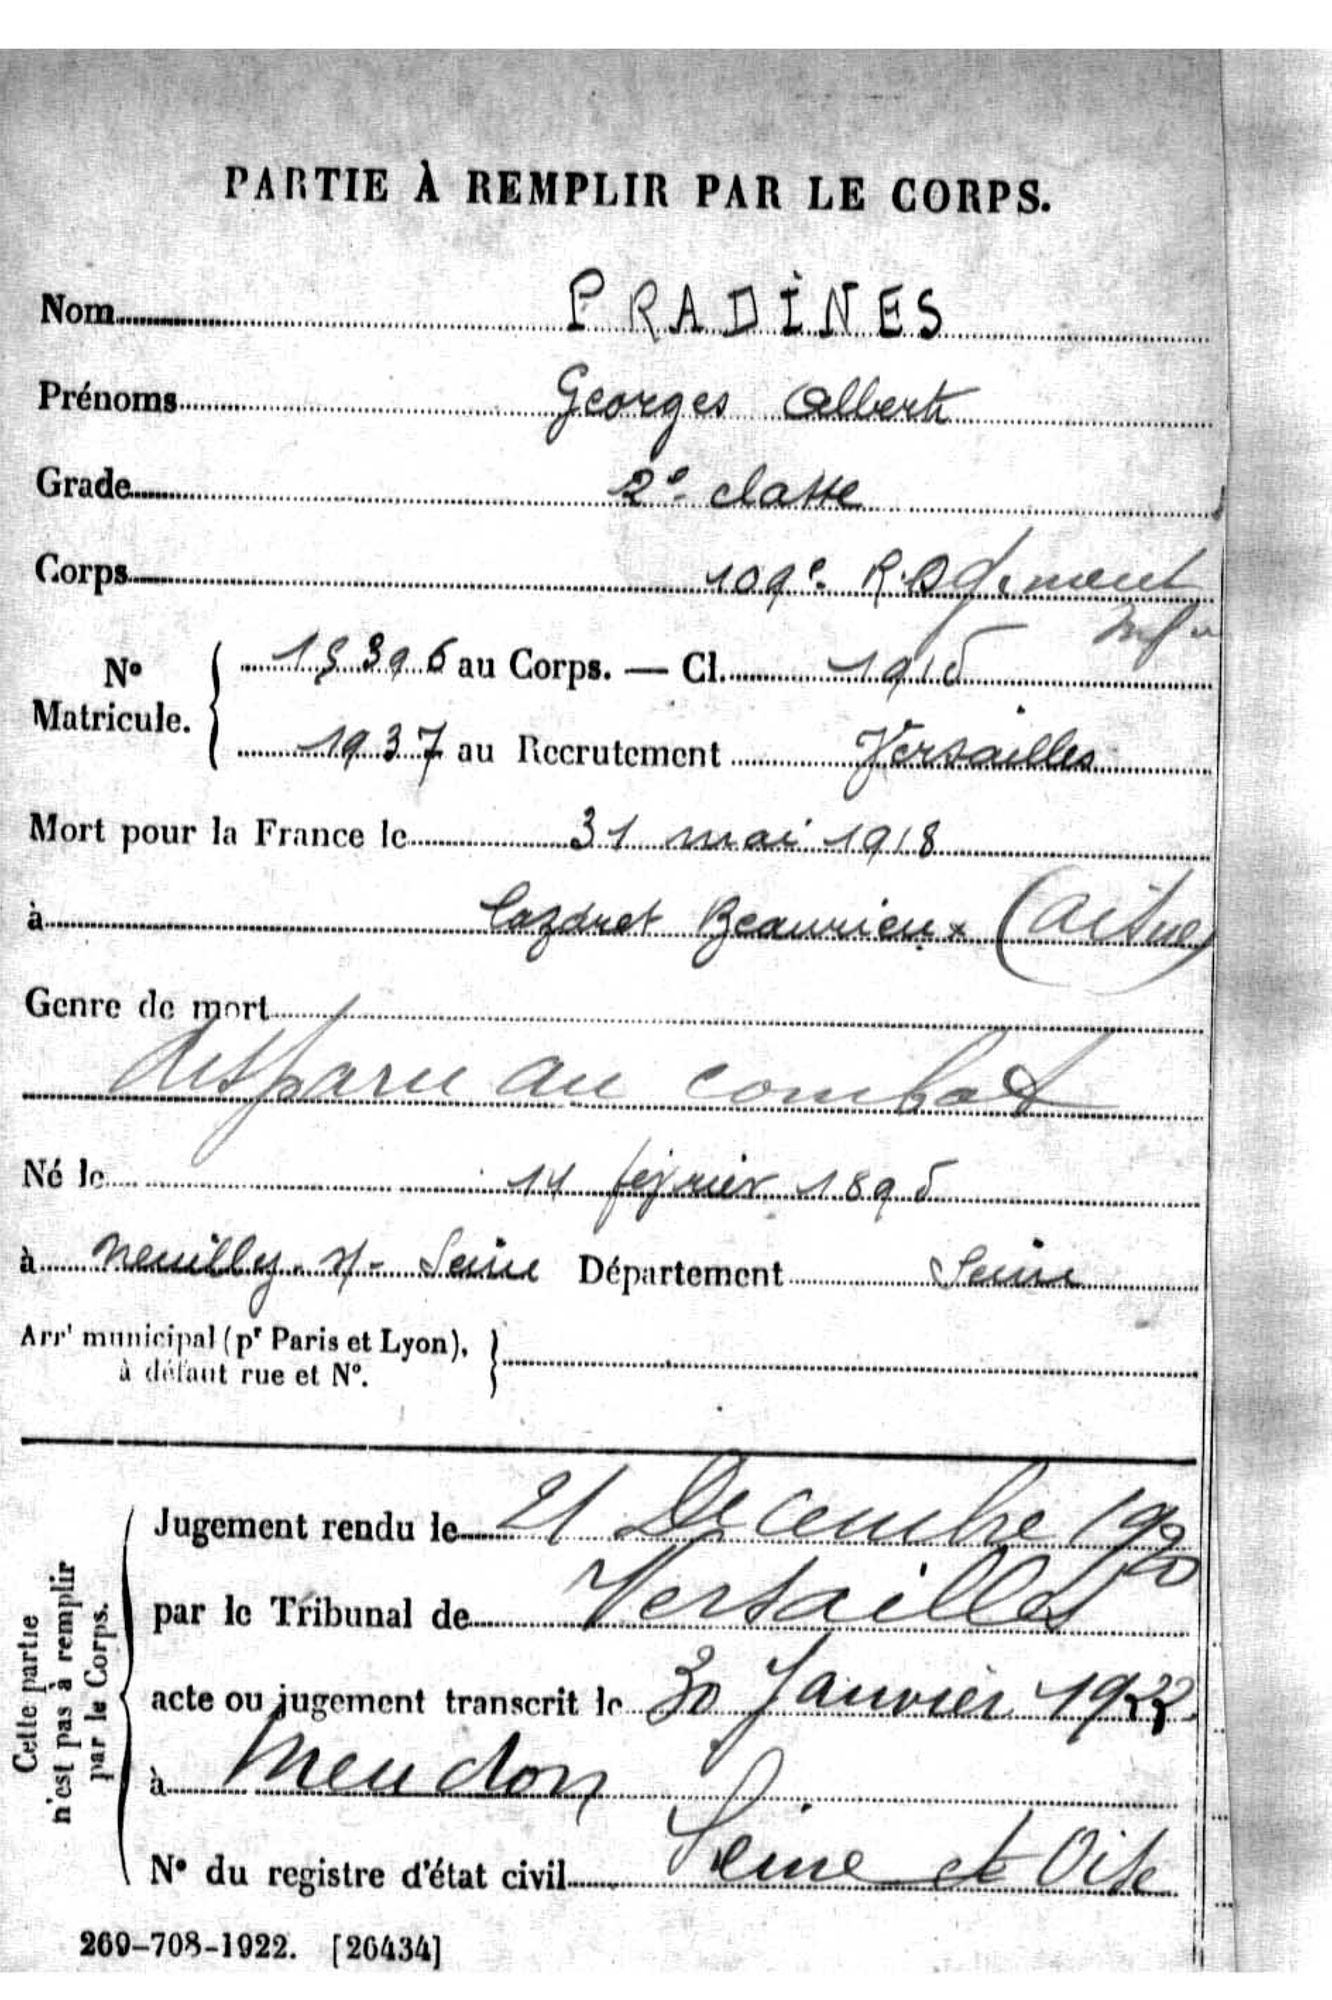 PARTIE À REMPLIR PAR LE CORPS.
Nom PRADINES
Prénoms Georges Albert
Grade 2e classe
Corps 109e Régiment
Inf ie
No Matricule. { 15396 au Corps. — Cl. 1915
1937 au Recrutement Versailles
Mort pour la France le 31 mai 1918
à Lazaret Beaurieux (Aisne)
Genre de mort
disparu au combat
Né le 14 février 1895
à Neuilly s/- Seine Département Seine
Arrt municipal (pr Paris et Lyon), à défaut rue et No. }
Cette partie n'est pas à remplir par le Corps.
Jugement rendu le 21 Decembre 1920
par le Tribunal de Versailles
acte ou jugement transcrit le 30 Janvier
à Meudon
No du registre d'état civil Seine et Oise
269-708-1922. [26434]